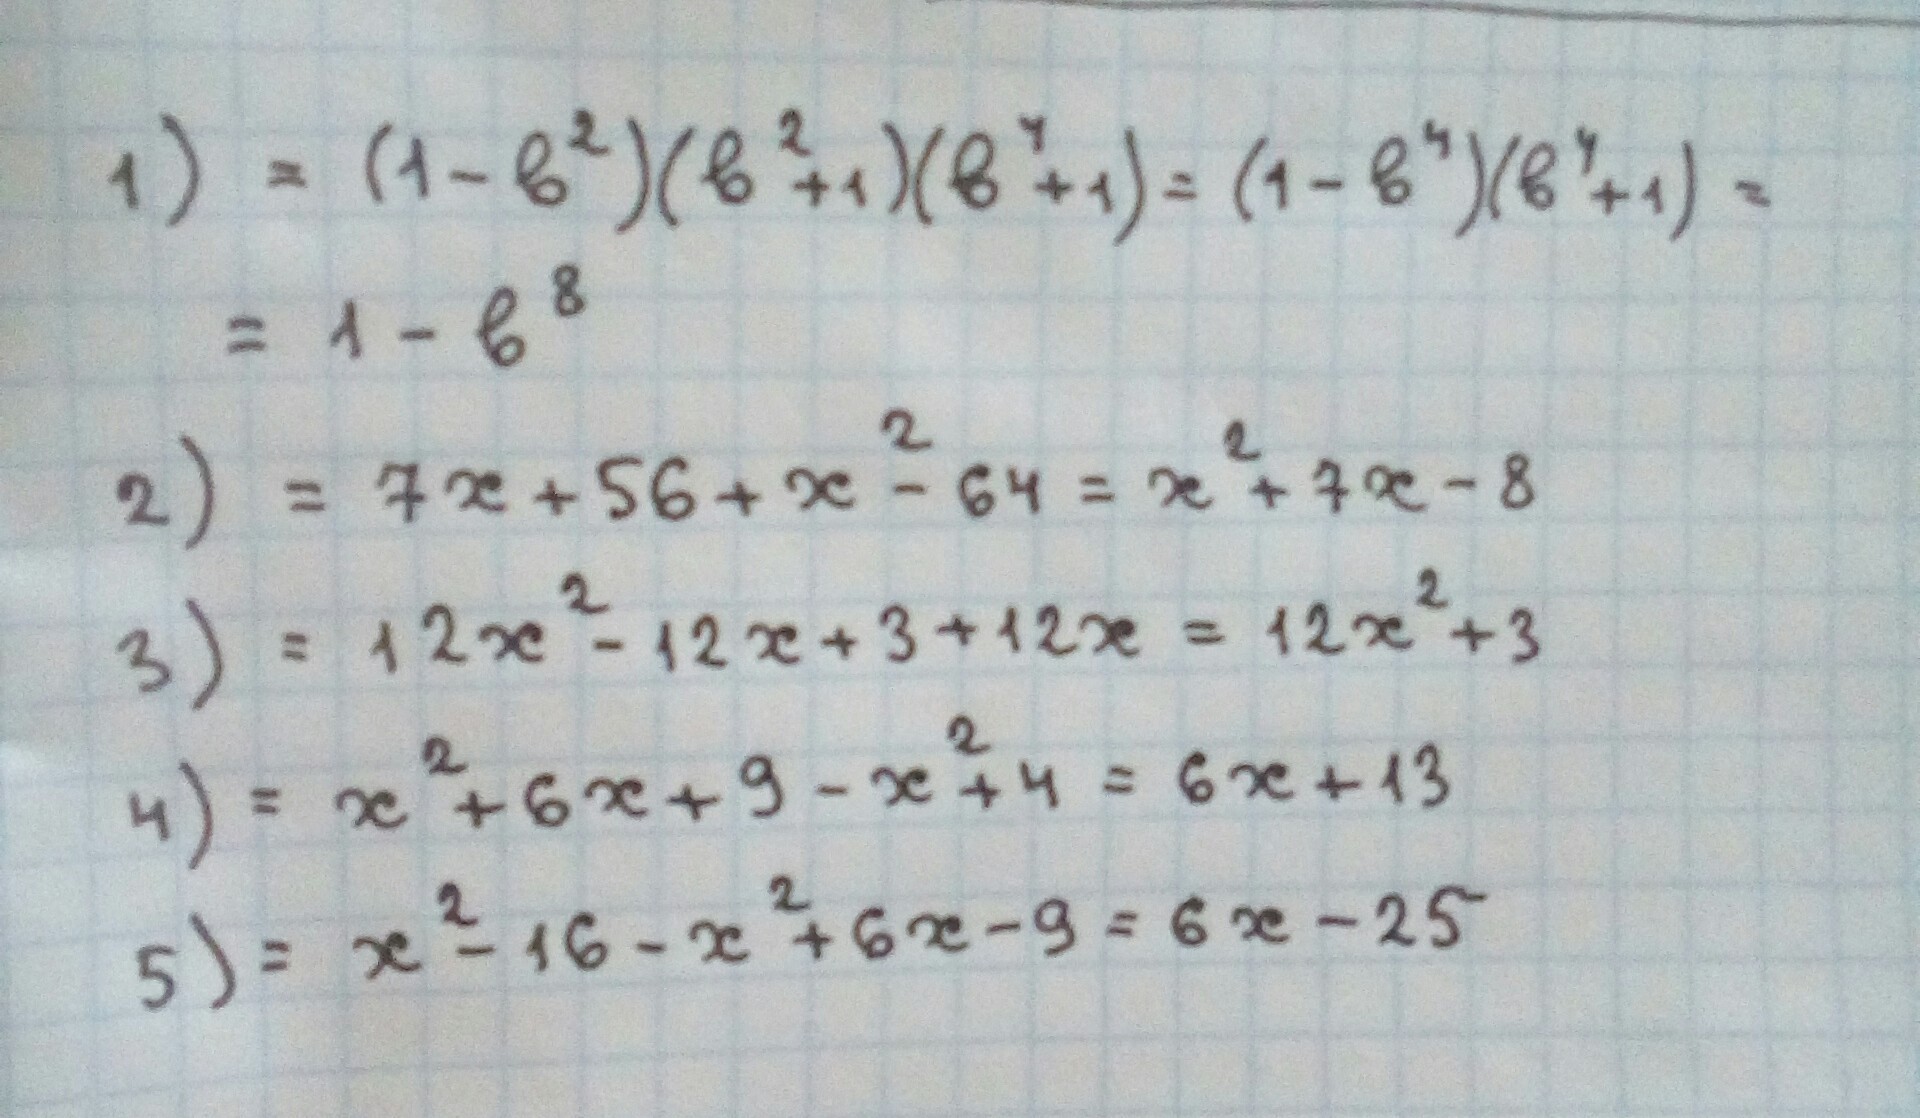 1) = (1-в²)(в²+1)(в⁴+1) = (1-в⁴)(в⁴+1) =
= 1-в⁸
2) = 7x+56+x²-64 = x²+7x-8
3) = 12x²-12x+3+12x = 12x²+3
4) = x²+6x+9-x²+4 = 6x+13
5) = x²-16-x²+6x-9 = 6x-25